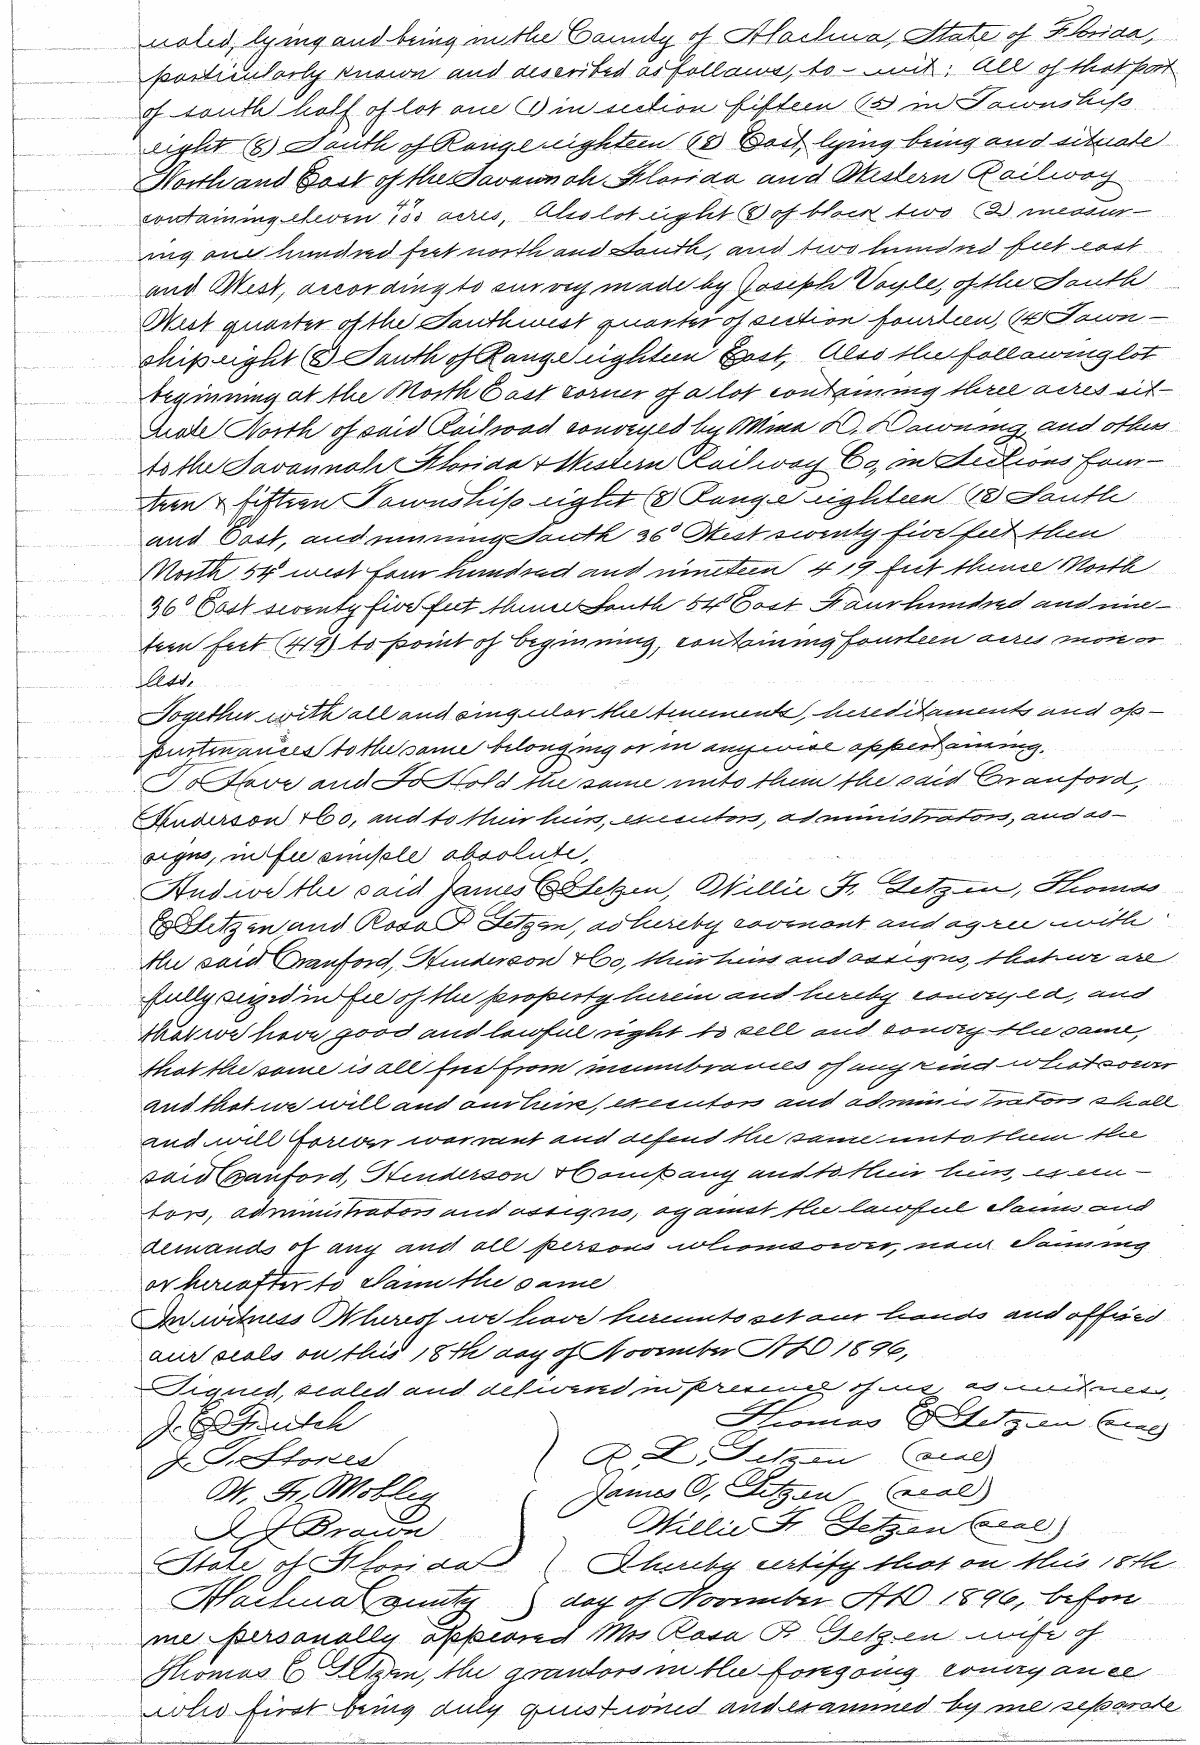 uated, lying and being in the County of Alachua, State of Florida,
particularly known and described as follows, to-wit: All of that part
of south half of lot one (1) in section fifteen (15) in Township
eight (8) South of Range eighteen (18) East, lying being and situate
North and East of the Savannah Florida and Western Railway
containing eleven acres, Also lot eight (8) of block two (2) measur-
ing one hundred feet north and South, and two hundred feet east
and West, according to survey made by Joseph Voyle, of the South
West quarter of the Southwest quarter of section fourteen, (14) Town-
ship eight (8) South of Range eighteen East, Also the following lot
beginning at the North East corner of a lot containing three acres sit-
uate North of said Railroad conveyed by Mina D. Downing and others
to the Savannah Florida & Western Railway Co, in Sections four-
teen & fifteen Township eight (8) Range eighteen (18) South
and East, and running South 36° West seventy five feet then
North 54° west four hundred and nineteen 419 feet thence North
36° East seventy five feet thence South 54° East Four hundred and nine-
teen feet (419) to point of beginning, containing fourteen acres more or
less.
Together with all and singular the tenements, hereditaments and ap-
purtinances to the same belonging or in anywise appertaining.
To Have and To Hold the same unto them the said Cranford,
Henderson & Co, and to their heirs, executors, administrators, and as-
signs, in fee simple absolute,
And we the said James C Getzen, Willie F. Getzen, Thomas
E Getzen and Rosa P Getzen, do hereby covenant and agree with
the said Cranford, Henderson & Co, their heirs and assigns, that we are
fully seized in fee of the property herein and hereby conveyed, and
that we have good and lawful right to sell and convey the same,
that the same is all free from incumbrances of any kind whatsover
and that we will and our heirs, executors and administrators shall
and will forever warrant and defend the same unto them the
said Cranford, Henderson & Company and to their heirs, execu-
tors, administrators and assigns, against the lawful claims and
demands of any and all persons whomsoever, now claiming
or hereafter to claim the same
In witness Whereof we have hereunto set our hands and affixed
our seals on this 18th day of November AD 1896,
Signed, sealed and delivered in presence of us as witness,
J. E Futch Thomas E Getzen (seal)
J. T. Stokes R. L. Getzen (seal)
W. F. Mobley James C, Getzen (seal)
Brown Willie F Getzen (seal)
State of Florida I hereby certify that on this 18th
Alachua County day of November AD 1896, before
me personally appeared Mrs Rosa P Getzen wife of
Thomas E Getzen, the grantors in the foregoing conveyance
who first being duly questioned and examined by me separate